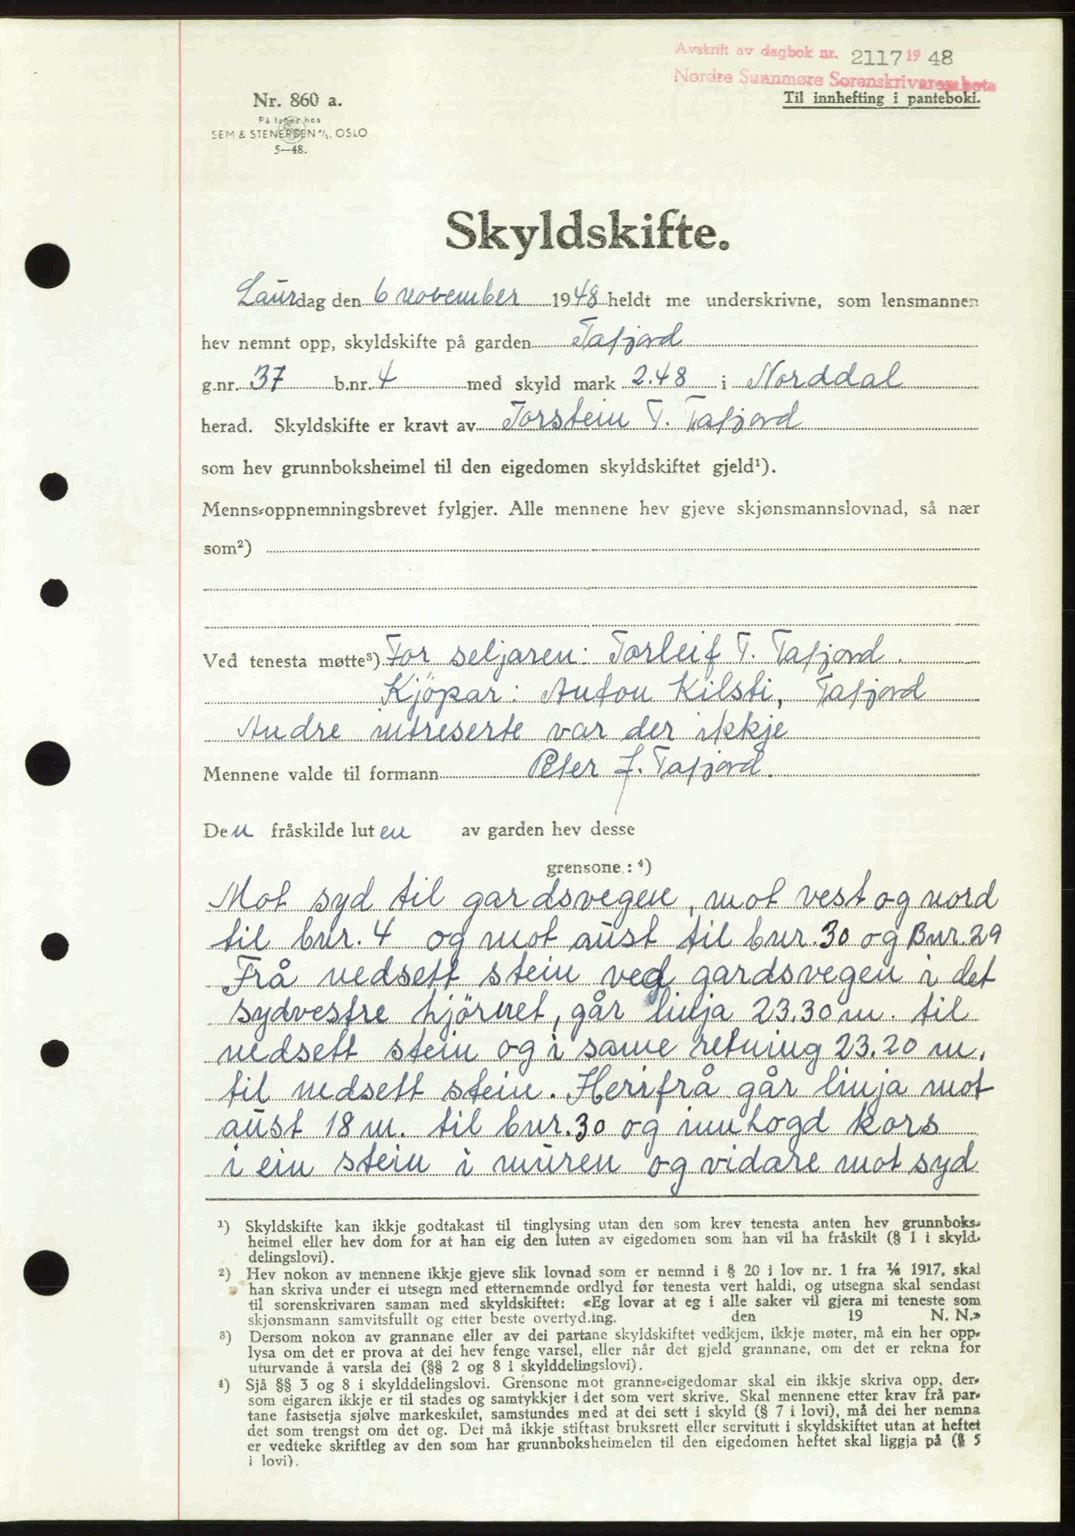 Avskrift av dagbok nr. 2117 19 48
Nordre Sunnmøre Sorenskrivarembete
Til innhefting i panteboki.
Nr. 860 a.
På lager hos
SEM & STENERSEN A/S. OSLO
5—48.
Skyldskifte.
Laurdag den 6 november 1948 heldt me underskrivne, som lensmannen
hev nemnt opp, skyldskifte på garden Tafjord
g.nr. 37 b.nr. 4 med skyld mark 2.48 i Norddal
herad. Skyldskifte er kravt av Torstein T. Tafjord
som hev grunnboksheimel til den eigedomen skyldskiftet gjeld¹).
Menns-oppnemningsbrevet fylgjer. Alle mennene hev gjeve skjønsmannslovnad, så nær
som²)
Ved tenesta møtte³) For seljaren: Torleif T. Tafjord.
Kjöpar: Anton Kilsti, Tafjord
Andre intreserte var der ikkje
Mennene valde til formann Peter J. Tafjord.
Den fråskilde luten av garden hev desse
grensone:⁴)
Mot syd til gardsvegen, mot vest og nord
til bnr. 4 og mot aust til bnr. 30 og Bnr. 29
Frå nedsett stein ved gardsvegen i det
sydvestre hjörnet, går linja 23.30 m. til
nedsett stein og i same retning 23.20 m.
til nedsett stein. Herifrå går linja mot
aust 18 m. til bnr. 30 og innhogd kors
i ein stein i muren og vidare mot syd
¹) Skyldskifte kan ikkje godtakast til tinglysing utan den som krev tenesta anten hev grunnboks-
heimel eller hev dom for at han eig den luten av eigedomen som han vil ha fråskilt (§ 1 i skyld-
delingslovi).
²) Hev nokon av mennene ikkje gjeve slik lovnad som er nemnd i § 20 i lov nr. 1 fra 1/6 1917, skal
han skriva under ei utsegn med etternemnde ordlyd før tenesta vert haldi, og utsegna skal sendast
til sorenskrivaren saman med skyldskiftet: «Eg lovar at eg i alle saker vil gjera mi teneste som
skjønsmann samvitsfullt og etter beste overtyding. den 19 N. N.»
³) Dersom nokon av grannane eller av dei partane skyldskiftet vedkjem, ikkje møter, må ein her opp-
lysa om det er prova at dei hev fenge varsel, eller når det gjeld grannane, om det er rekna for
uturvande å varsla dei (§§ 2 og 8 i skylddelingslovi).
⁴) Sjå §§ 3 og 8 i skylddelingslovi. Grensone mot granne-eigedomar skal ein ikkje skriva opp, der-
som eigaren ikkje er til stades og samtykkjer i det som vert skrive. Skal mennene etter krav frå par-
tane fastsetja sjølve markeskilet, samstundes med at dei sett i skyld (§ 7 i lovi), må dei her nemna
det som trengst om det og. Det må ikkje stiftast bruksrett eller servitutt i skyldskiftet utan at heftet
er vedteke skriftleg av den som har grunnboksheimelen til den eigedomen heftet skal liggja på (§ 5
i lovi).